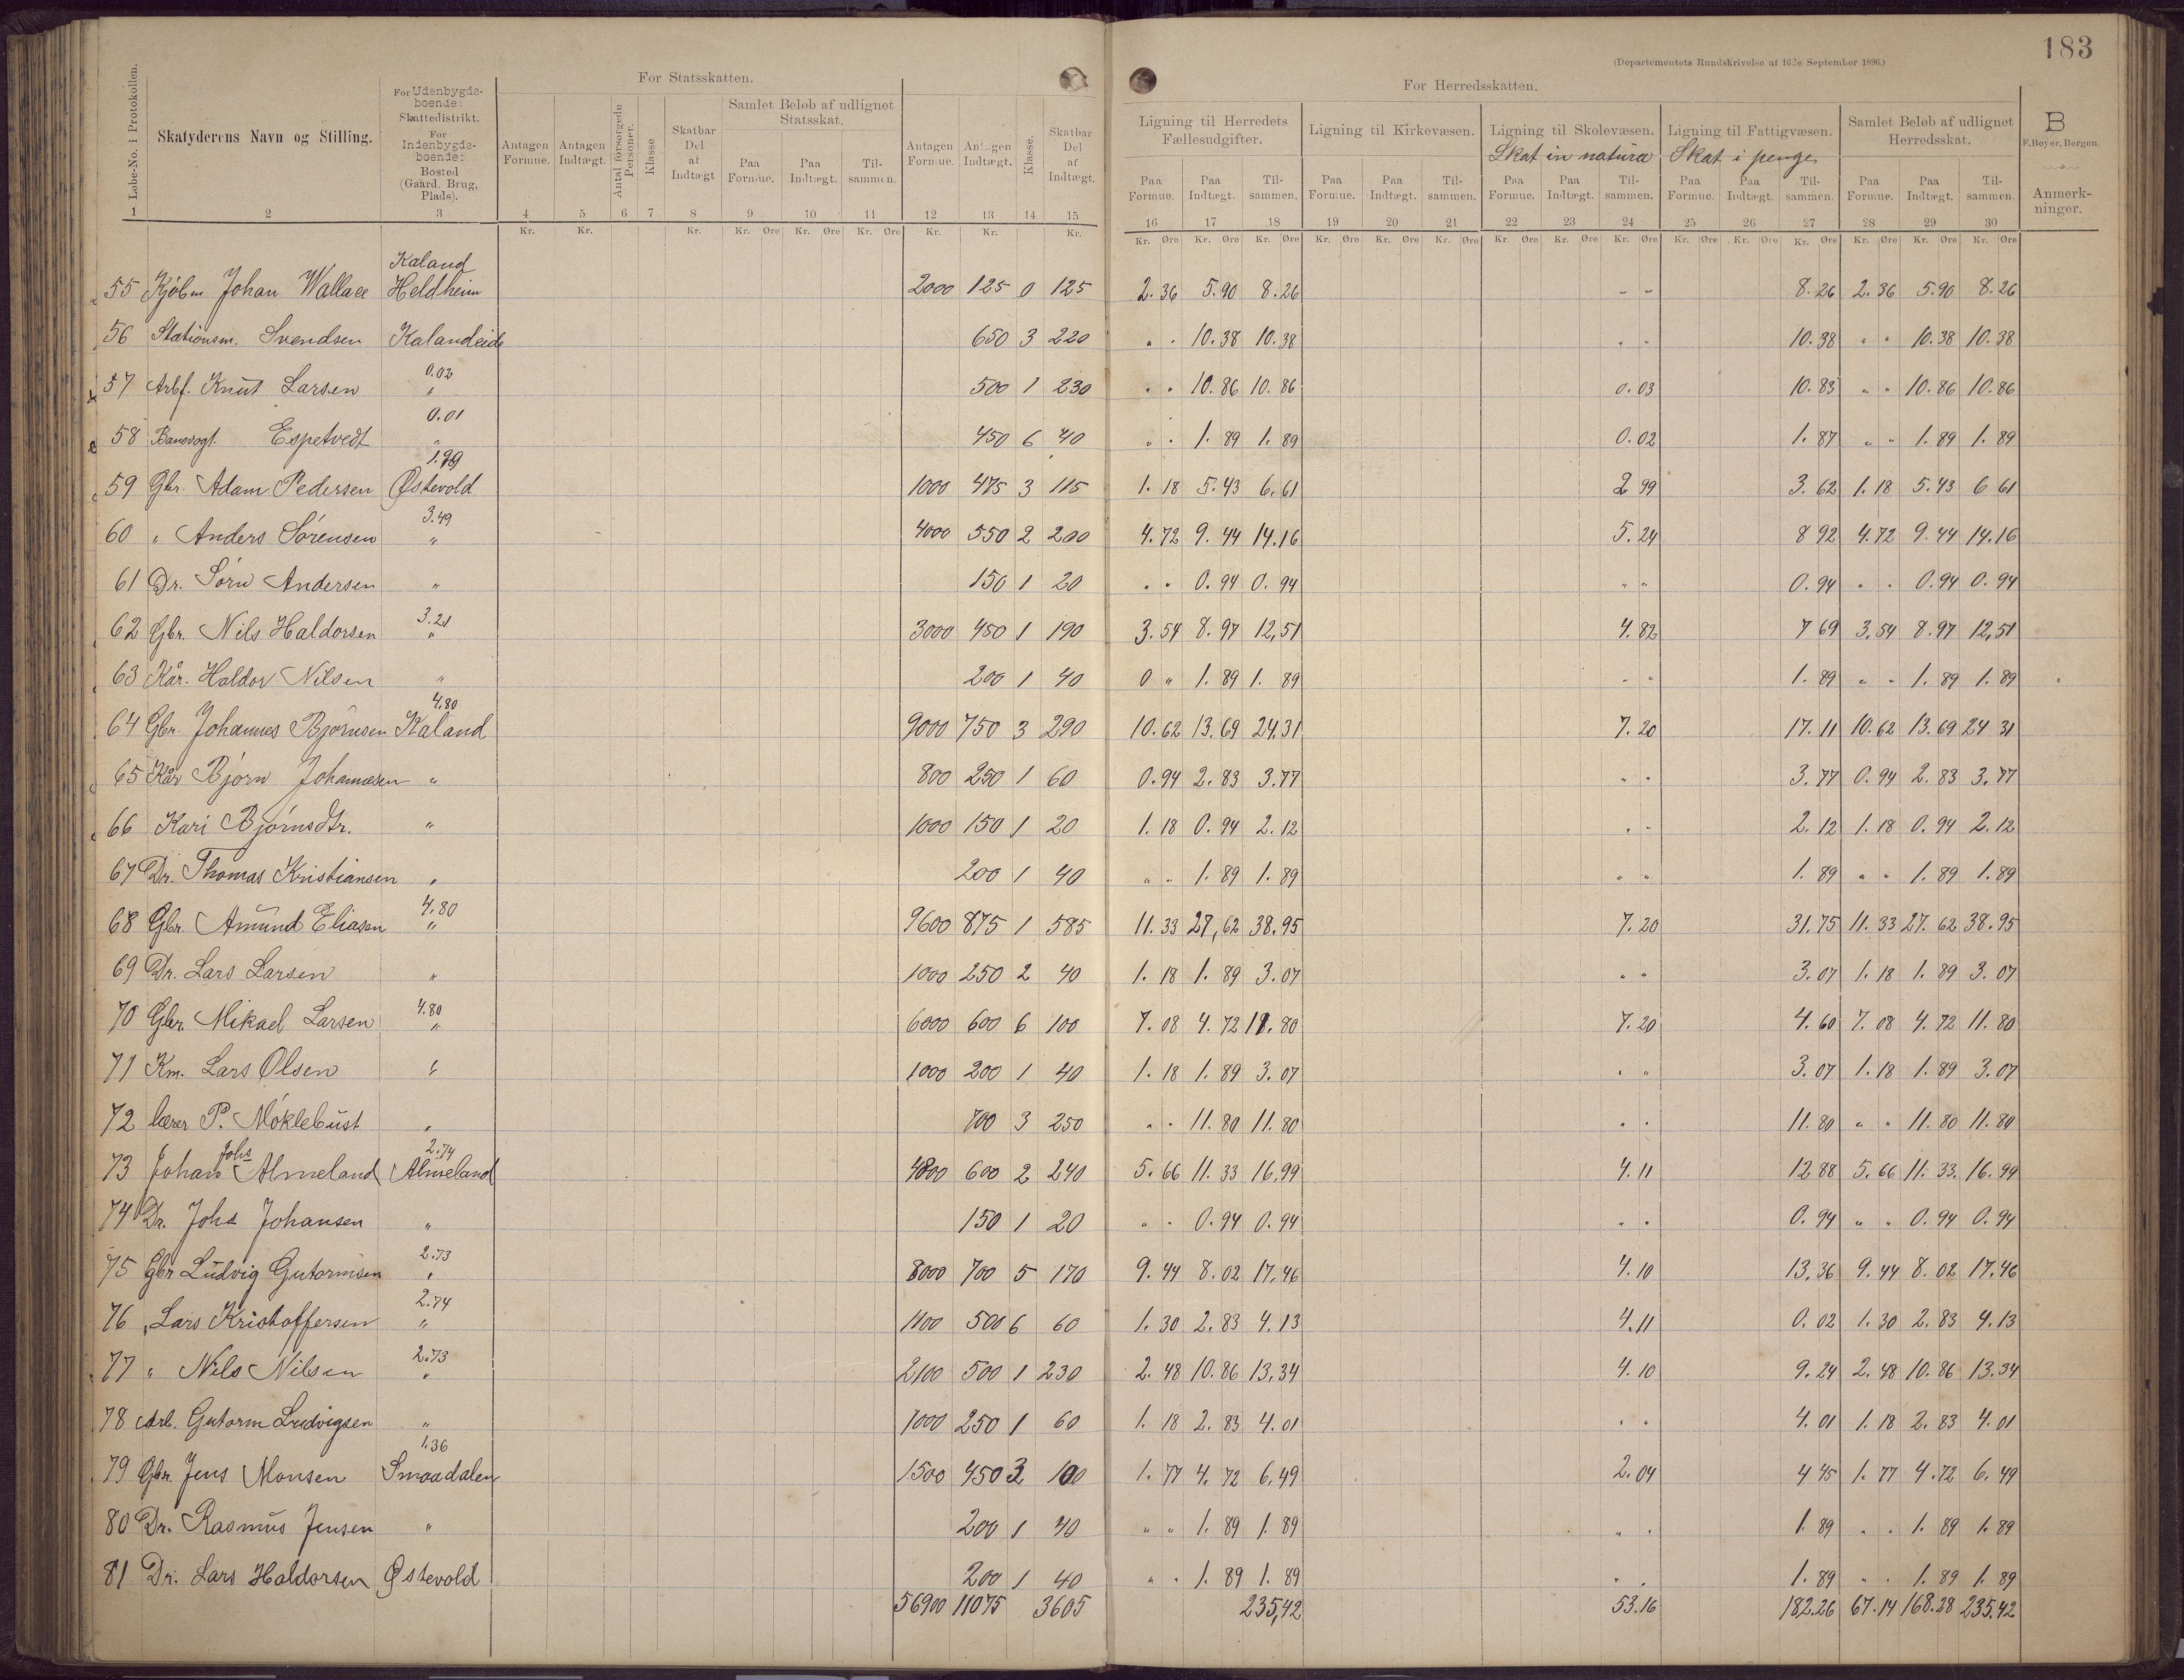 183
(Departementets Rundskrivelse af 16de September 1896.)
For Statsskatten. For Herredsskatten.
Løbe-No. i Protokollen. Skatyderens Navn og Stilling. For Udenbygdsboende: Skattedistrikt. For Indenbygdsboende: Bosted (Gaard, Brug, Plads). Antagen Formue. Antagen Indtægt. Antal forsørgede Personer. Klasse Skatbar Del af Indtægt Samlet Beløb af udlignet Statsskat. Antagen Formue. Antagen Indtægt. Klasse. Skatbar Del af Indtægt. Ligning til Herredets Fællesudgifter. Ligning til Kirkevæsen. Ligning til Skolevæsen. Ligning til Fattigvæsen. Samlet Beløb af udlignet Herredsskat. B
F. Beyer, Bergen.
Skat in natura Skat i penge
Paa Formue. Paa Indtægt. Tilsammen. Paa Formue. Paa Indtægt. Tilsammen. Paa Formue. Paa Indtægt. Tilsammen. Paa Formue. Paa Indtægt. Tilsammen. Paa Formue. Paa Indtægt. Tilsammen. Paa Formue. Paa Indtægt. Tilsammen. Anmerkninger.
1 2 3 4 5 6 7 8 9 10 11 12 13 14 15 16 17 18 19 20 21 22 23 24 25 26 27 28 29 30
Kr. Kr. Kr. Kr. Øre Kr. Øre Kr. Øre Kr. Kr. Kr. Kr. Øre Kr. Øre Kr. Øre Kr. Øre Kr. Øre Kr. Øre Kr. Øre Kr. Øre Kr. Øre Kr. Øre Kr. Øre Kr. Øre Kr. Øre Kr. Øre Kr. Øre
Kaland
55 Kjøbm Johan Wallace Heldheim 2000 125 0 125 2.36 5.90 8.26 - - 8.26 2.36 5.90 8.26
56 Stationsm. Svendsen Kalandeide 650 3 220 " " 10.38 10.38 " " 10.38 " " 10.38 10.38
0.02
57 Arbf. Knut Larsen " 500 1 230 " " 10.86 10.86 0.03 10.83 " " 10.86 10.86
0.01
58 Banevogt. Espetvedt " 450 6 40 " " 1.89 1.89 0.02 1.87 " " 1.89 1.89
1.99
59 Gbr. Adam Pedersen Østevold 1000 475 3 115 1.18 5.43 6.61 2 99 3.62 1.18 5.43 6 61
3.49
60 " Anders Sørensen " 4000 550 2 200 4.72 9.44 14.16 5.24 8 92 4.72 9.44 14.16
61 Dr. Sørn Andersen " 150 1 20 " " 0.94 0.94 " " 0.94 " " 0.94 0.94
3.21
62 Gbr. Nils Haldorsen " 3000 450 1 190 3.54 8.97 12,51 4.82 7 69 3,54 8.97 12,51
63 Kår. Haldor Nilsen " 200 1 40 0 " 1.89 1.89 " " 1.89 " " 1.89 1.89
4.80
64 Gbr. Johannes Bjørnsen Kaland 9000 750 3 290 10.62 13.69 24.31 7.20 17.11 10.62 13.69 24 31
65 Kår Bjørn Johannesen " 800 250 1 60 0.94 2.83 3.77 " " 3.77 0.94 2.83 3.77
66 Kari Bjørnsdtr. " 1000 150 1 20 1.18 0.94 2.12 " " 2.12 1.18 0.94 2.12
67 Dr. Thomas Kristiansen " 200 1 40 " " 1.89 1.89 " " 1.89 " " 1.89 1.89
4.80
68 Gbr. Amund Eliasen " 9600 875 1 585 11.33 27,62 38.95 7.20 31.75 11.33 27.62 38.95
69 Dr. Lars Larsen " 1000 250 2 40 1.18 1.89 3.07 " " 3.07 1.18 1.89 3.07
4.80
70 Gbr. Mikael Larsen " 6000 600 6 100 7.08 4.72 11.80 7.20 4.60 7.08 4.72 11.80
71 Km. Lars Olsen " 1000 200 1 40 1.18 1.89 3.07 " " 3.07 1.18 1.89 3.07
72 lærer P. Møklebust " 700 3 250 " " 11.80 11.80 " " 11.80 " " 11.80 11.80
Johs 2.74
73 Johan Almeland Almeland 4800 600 2 240 5.66 11.33 16.99 4.11 12 88 5.66 11.33. 16.99
74 Dr. Johs Johansen " 150 1 20 " " 0.94 0.94 " " 0.94 " " 0.94 0.94
2.73
75 Gbr Ludvig Gutormsen " 8000 700 5 170 9.44 8.02 17.46 4.10 13,36 9.44 8.02 17.46
2.74
76 " Lars Kristoffersen " 1100 500 6 60 1.30 2.83 4.13 4.11 0.02 1.30 2.83 4.13
2.73
77 " Nils Nilsen " 2100 500 1 230 2.48 10.86 13,34 4.10 9.24 2.48 10.86 13.34
78 Arb. Gutorm Ludvigsen " 1000 250 1 60 1.18 2.83 4.01 " " 4.01 1.18 2.83 4.01
1.36
79 Gbr. Jens Monsen Smaadalen 1500 450 3 100 1.77 4.72 6,49 2.04 4 45 1.77 4.72 6.49
80 Dr. Rasmus Jensen " 200 1 40 " " 1.89 1.89 " " 1.89 " " 1.89 1.89
81 Dr. Lars Haldorsen Østevold 200 1 40 " " 1.89 1.89 " " 1.89 " " 1.89 1.89
56900 11075 3605 235,42 53.16 182.26 67.14 168.28 235.42